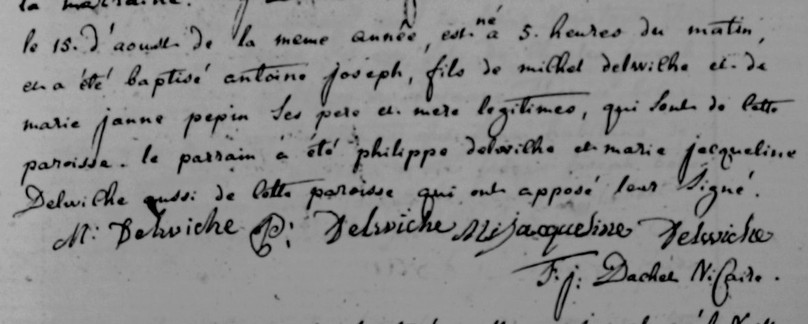 la marraine.
le 15. d'aoust de la meme année, est né à 5. heures du matin,
et a été baptisé antoine joseph, fils de michel delwilhe et de
marie janne pepin ses pere et mere legitimes, qui sont de cette
paroisse. le parrain a été philippe delwilhe et marie jacqueline
Delwilhe aussi de cette paroisse qui ont apposé leur signé.
M: Delwiche P: Delwiche M: jacqueline Delwiche
F. j. Dachet Vicaire.